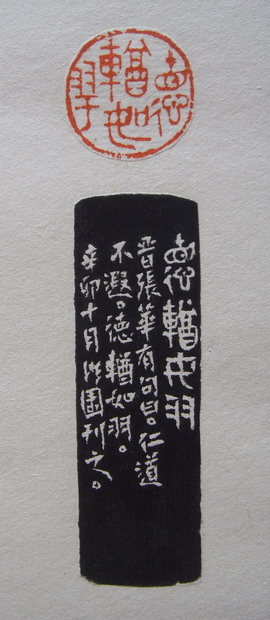 悳
輶如
羽
悳輶如羽
晋張華有句曰。仁道
不遐。德輶如羽。
辛卯十月園刊之。